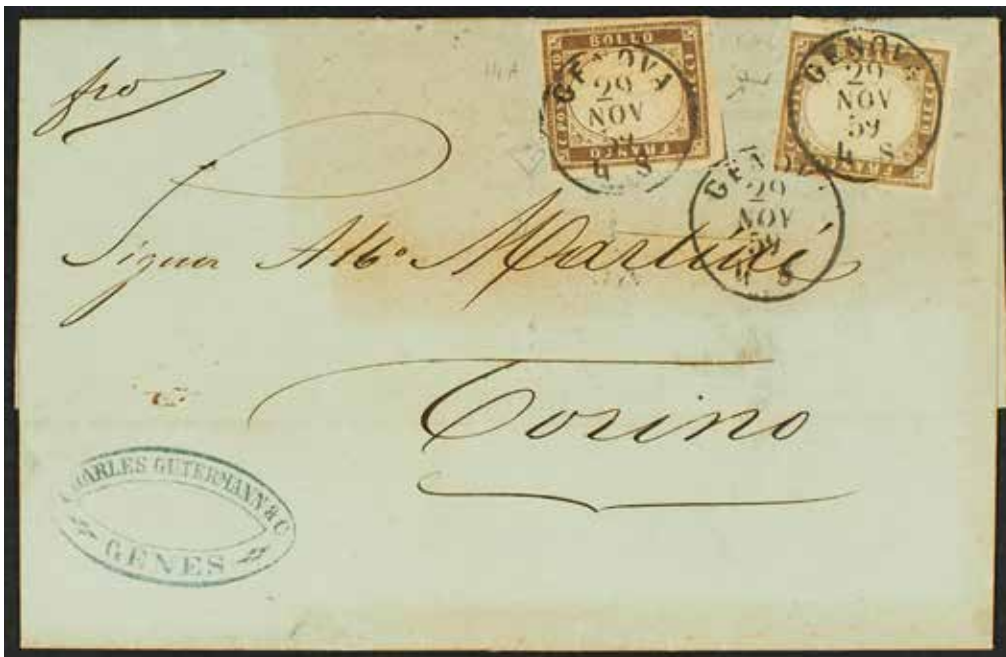 fro
BOLLO
C. POSTALE
FRANCO
GENOVA
29
NOV
59
4 S
GENOVA
29
NOV
59
4 S
FRANCO
GENOVA
29
NOV
59
4 S
Signor Alb° Martini
Torino
CHARLES GUTERMANN & C
GENES